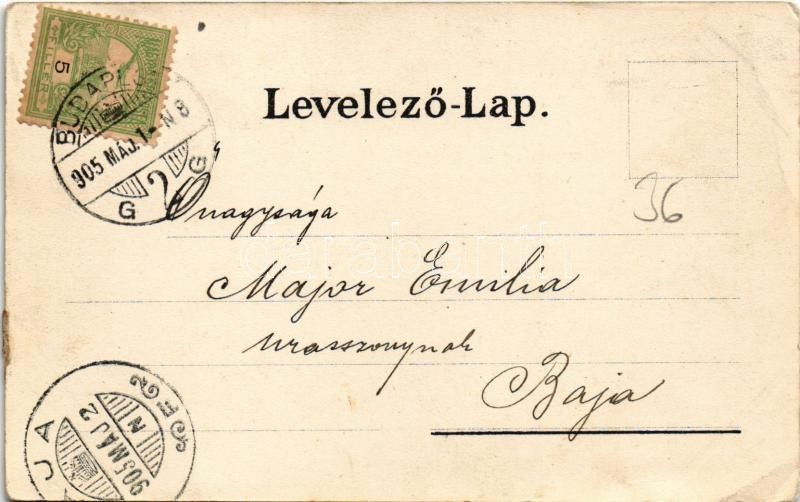 5
FILLÉR
BUDAPEST
905 MÁJ. 1 - N 8
G 2 G
Levelező-Lap.
36
Őnagysága
Major Emilia
urasszonynak
Baja
905 MÁJ 2
N
darabanth